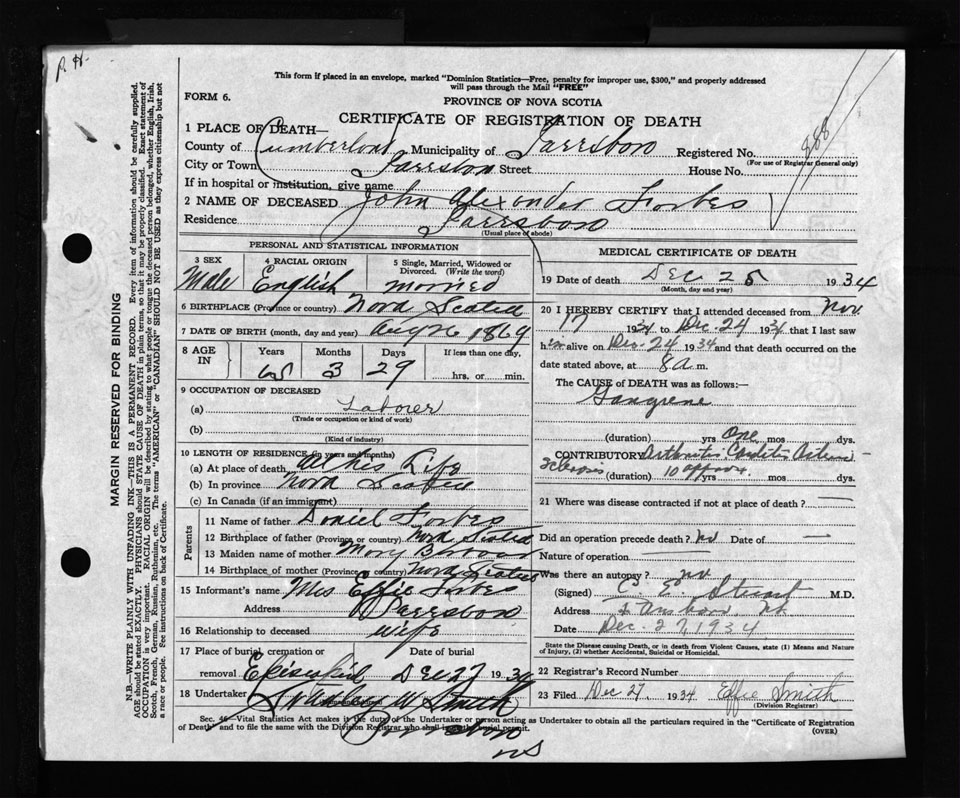 R. H.
This form if placed in an envelope, marked "Dominion Statistics—Free, penalty for improper use, $300," and properly addressed
will pass through the Mail "FREE"
FORM 6.
PROVINCE OF NOVA SCOTIA
CERTIFICATE OF REGISTRATION OF DEATH
1 PLACE OF DEATH—
County of Cumberland Municipality of Parrsboro Registered No. 888
(For use of Registrar General only)
City or Town Parrsboro Street House No.
If in hospital or institution, give name
2 NAME OF DECEASED John Alexander Forbes
Residence Parrsboro
(Usual place of abode)
PERSONAL AND STATISTICAL INFORMATION
3 SEX Male
4 RACIAL ORIGIN English
5 Single, Married, Widowed or Divorced. (Write the word) Married
6 BIRTHPLACE (Province or country) Nova Scotia
7 DATE OF BIRTH (month, day and year) Aug 26 1869
8 AGE IN Years 65 Months 3 Days 29 If less than one day, hrs. or min.
9 OCCUPATION OF DECEASED
(a) Laborer
(Trade or occupation or kind of work)
(b)
(Kind of industry)
10 LENGTH OF RESIDENCE (in years and months)
(a) At place of death All his Life
(b) In province Nova Scotia
(c) In Canada (if an immigrant)
Parents
11 Name of father Daniel Forbes
12 Birthplace of father (Province or country) Nova Scotia
13 Maiden name of mother Mary
14 Birthplace of mother (Province or country) Nova Scotia
15 Informant's name Mrs Effie Forbes
Address Parrsboro
16 Relationship to deceased wife
17 Place of burial, cremation or removal Episcopal Date of burial Dec 27 1934
18 Undertaker W Smith
Parrsboro
NS
MEDICAL CERTIFICATE OF DEATH
19 Date of death Dec 25 1934
(Month, day and year)
20 I HEREBY CERTIFY that I attended deceased from Nov.
17 1934 to Dec. 24 1934 that I last saw
him alive on Dec. 24 1934 and that death occurred on the
date stated above, at 8 a m.
The CAUSE OF DEATH was as follows:—
Gangrene
(duration) yrs One mos dys.
CONTRIBUTORY Arterio-
sclerosis (duration) 10 approx. yrs mos dys.
21 Where was disease contracted if not at place of death? —
Did an operation precede death? no Date of —
Nature of operation —
Was there an autopsy? no
(Signed) C. E. Stuart M.D.
Address Parrsboro, N.S.
Date Dec. 27, 1934
State the Disease causing Death, or in death from Violent Causes, state (1) Means and Nature
of Injury, (2) whether Accidental, Suicidal or Homicidal.
22 Registrar's Record Number
23 Filed Dec 27, 1934 Effie Smith
(Division Registrar)
Sec. 46—Vital Statistics Act makes it the duty of the Undertaker or person acting as Undertaker to obtain all the particulars required in the "Certificate of Registration
of Death" and to file the same with the Division Registrar who shall issue the burial permit.
(OVER)
MARGIN RESERVED FOR BINDING
N.B.—WRITE PLAINLY WITH UNFADING INK—THIS IS A PERMANENT RECORD. Every item of information should be carefully supplied.
AGE should be stated EXACTLY. PHYSICIANS should STATE CAUSE OF DEATH in plain terms, so that it may be properly classified. Exact statement of
OCCUPATION is very important. RACIAL ORIGIN will be described by stating to what people or tongue the deceased person belonged, whether English, Irish,
Scotch, French, German, Russian, Ruthenian, etc. The terms "AMERICAN" or "CANADIAN" SHOULD NOT BE USED as they express citizenship but not
a race or people. See instructions on back of Certificate.